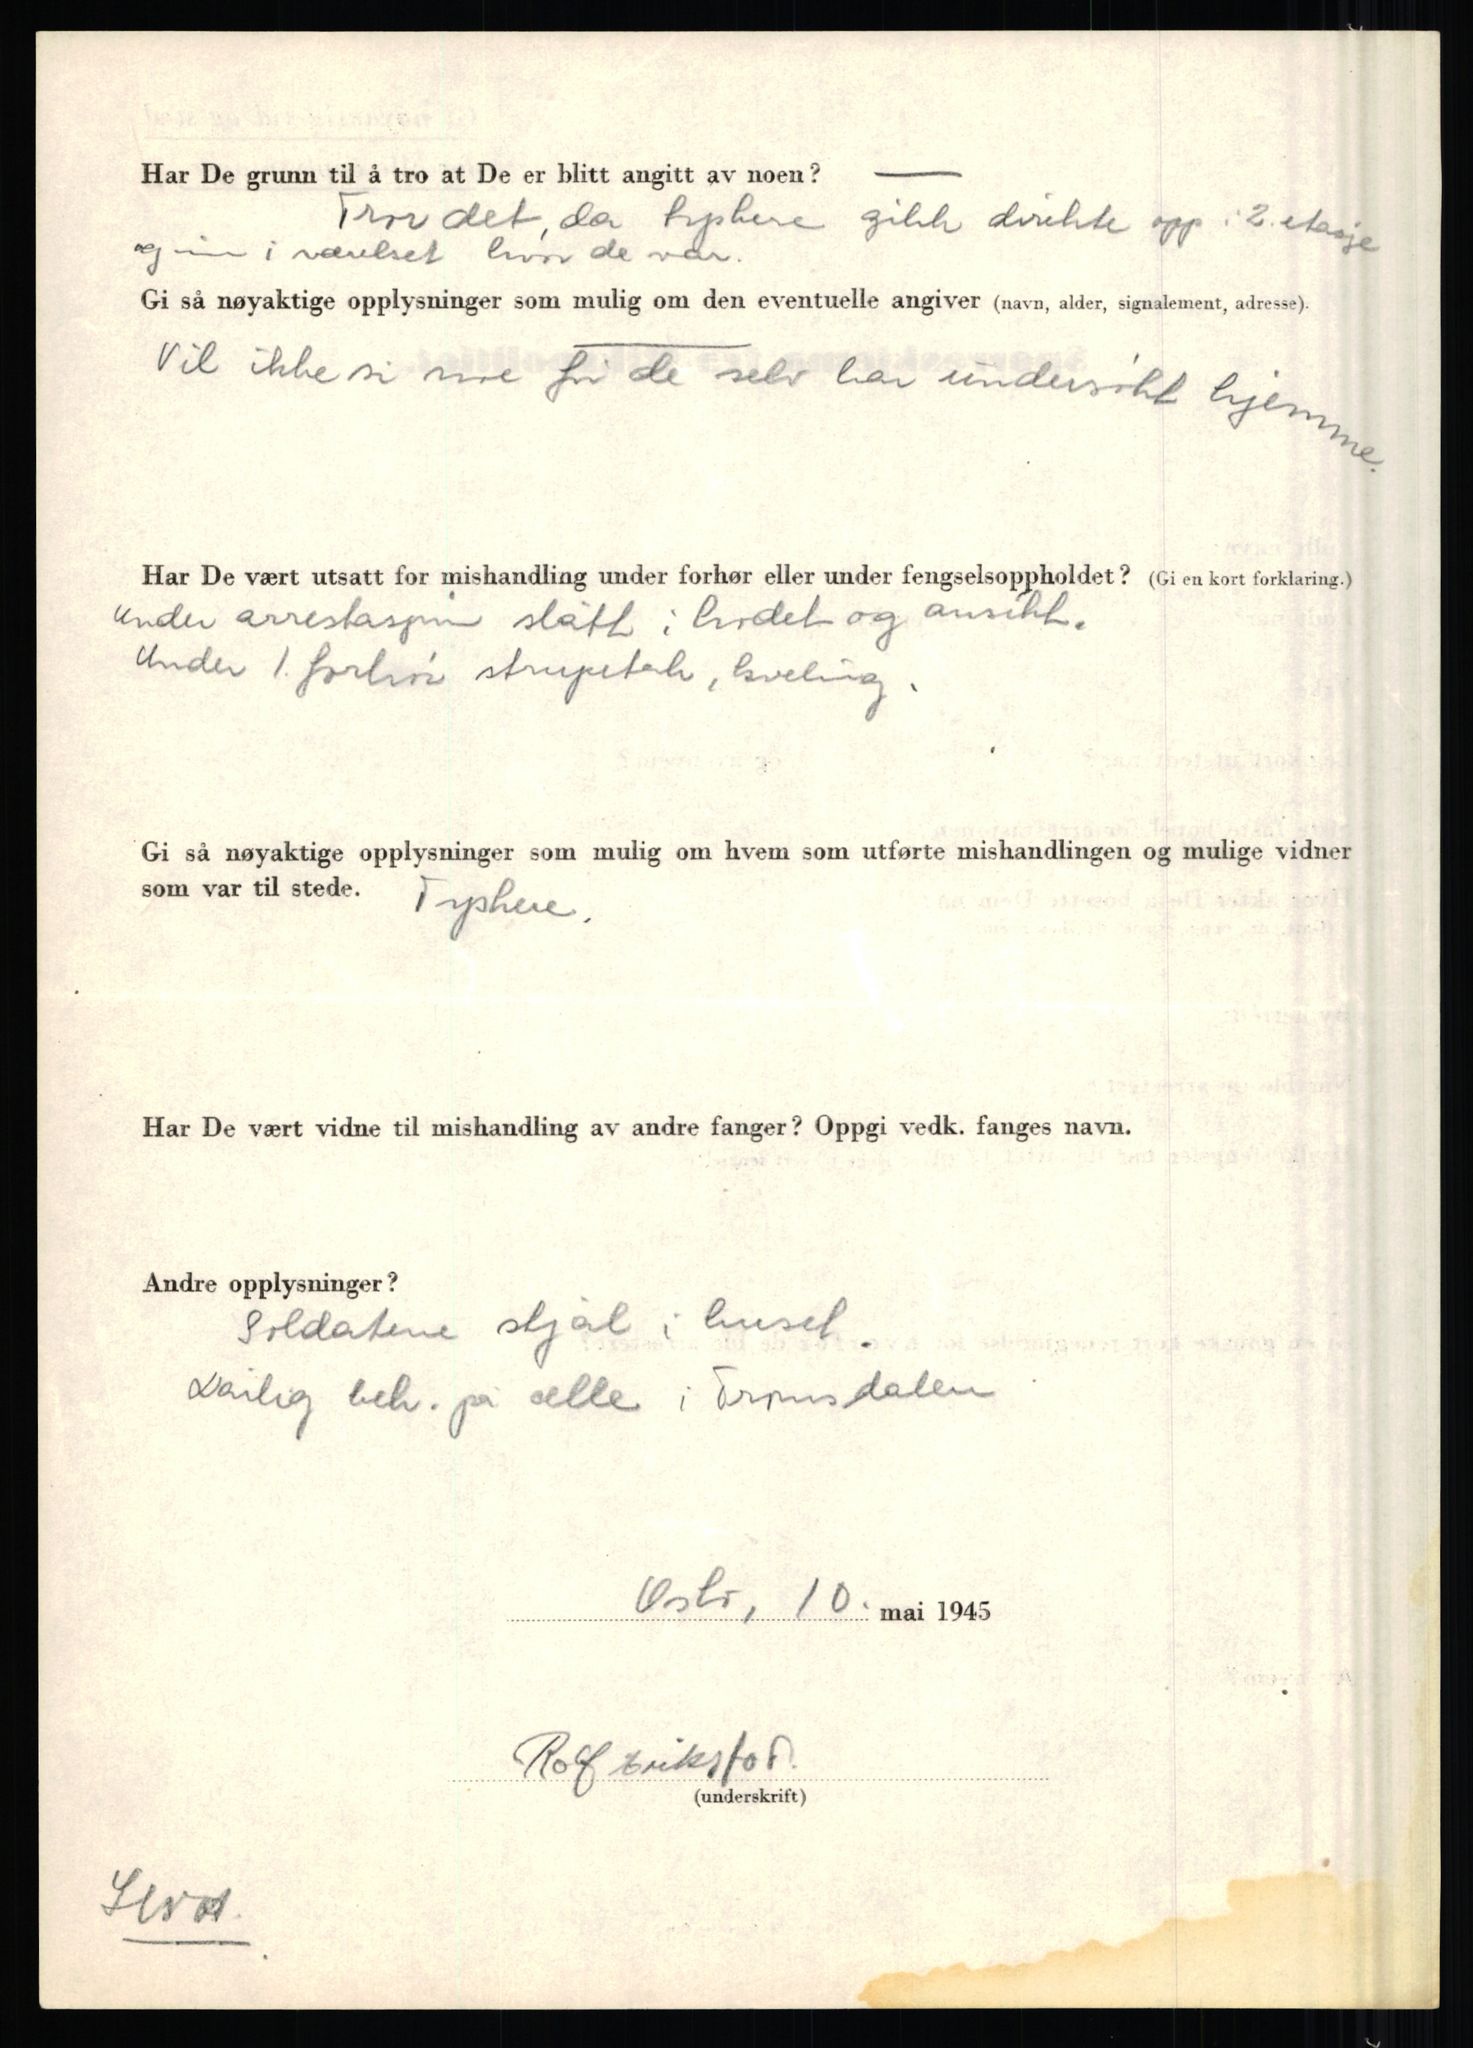 Har De grunn til å tro at De er blitt angitt av noen? —
Tror det, da tyskere gikk direkte opp i 2. etasje
og inn i værelset hvor de var.
Gi så nøyaktige opplysninger som mulig om den eventuelle angiver (navn, alder, signalement, adresse).
Vil ikke si noe før de selv har undersøkt hjemme.
Har De vært utsatt for mishandling under forhør eller under fengselsoppholdet? (Gi en kort forklaring.)
Under arrestasjon slått i hodet og ansikt.
Under 1. forhør strupetak, kveling.
Gi så nøyaktige opplysninger som mulig om hvem som utførte mishandlingen og mulige vidner
som var til stede. Tyskere.
Har De vært vidne til mishandling av andre fanger? Oppgi vedk. fanges navn.
Andre opplysninger?
Soldatene stjal i huset.
Dårlig beh. på alle i Tromsdalen
Oslo, 10. mai 1945
Rolf
(underskrift)